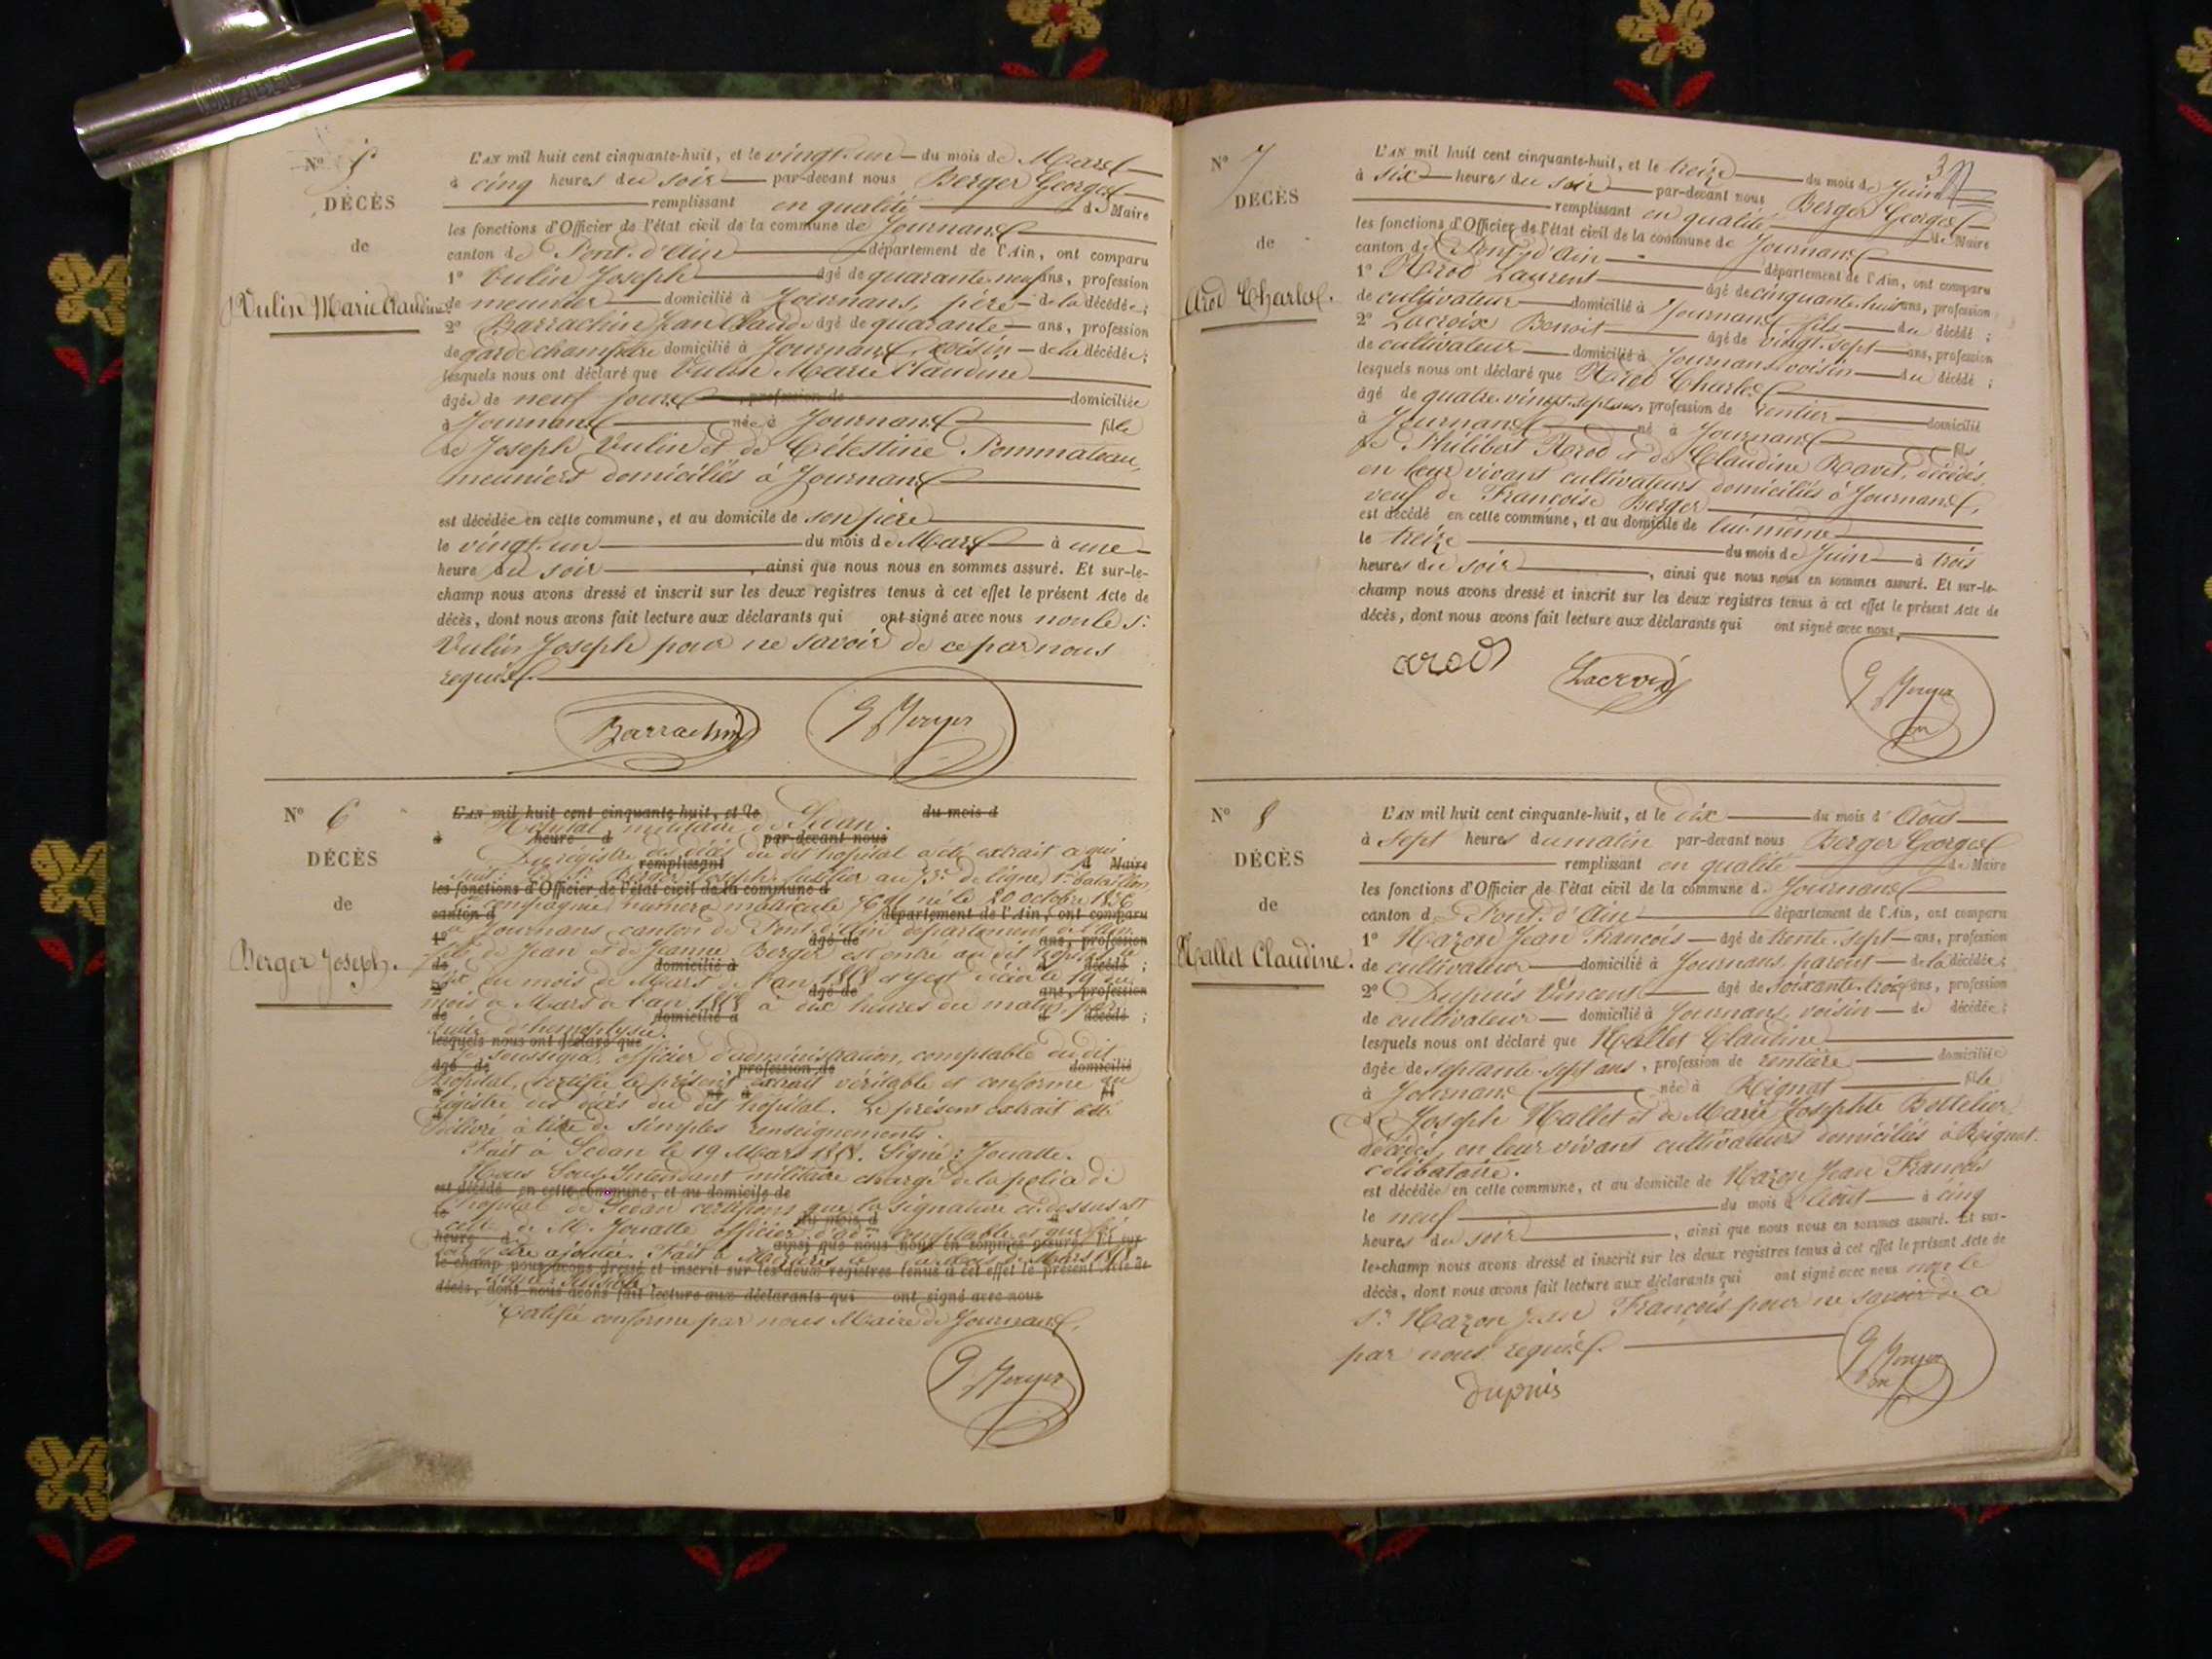 Nº 5
DÉCÈS
de
Vulin Marie Claudine.
L'AN mil huit cent cinquante-huit, et le vingt-un du mois de Mars
à cinq heures du soir par-devant nous Berger Georges
remplissant en qualité de Maire
les fonctions d'Officier de l'état civil de la commune de Journans
canton de Pont-d'Ain département de l'Ain, ont comparu
1º Vulin Joseph âgé de quarante-neuf ans, profession
de meunier domicilié à Journans, père de la décédée;
2º Barrachin Jean Claude âgé de quarante ans, profession
de garde champêtre domicilié à Journans, voisin de la décédée;
lesquels nous ont déclaré que Vulin Marie Claudine
âgée de neuf jours, profession de domiciliée
à Journans née à Journans fille
de Joseph Vulin et de Célestine Pommateau,
meuniers domiciliés à Journans
est décédée en cette commune, et au domicile de son père
le vingt-un du mois de Mars à une
heure du soir, ainsi que nous nous en sommes assuré. Et sur-le-
champ nous avons dressé et inscrit sur les deux registres tenus à cet effet le présent Acte de
décès, dont nous avons fait lecture aux déclarants qui ont signé avec nous non le Sr
Vulin Joseph pour ne savoir de ce par nous
requis.
Barrachin G Berger
Nº 6
DÉCÈS
de
Berger Joseph.
L'AN mil huit cent cinquante-huit, et le du mois d
Hôpital militaire de Sedan.
à heure d par-devant nous
Du régistre des décès du dit hôpital a été extrait ce qui
remplissant d Maire
suit: Le Sr Berger Joseph fusilier au 73e de ligne, 1er bataillon,
les fonctions d'Officier de l'état civil de la commune d
compagnie, numéro matricule né le 20 octobre 1836
canton d département de l'Ain, ont comparu
à Journans canton de Pont d'Ain département de l'Ain
1º âgé de ans, profession
fils de Jean et de Jeanne Berger est entré au dit hôpital le
de domicilié à d décédé;
du mois de Mars de l'an 1858 et y est décédé le 19 du
2º âgé de ans, profession
mois de Mars de l'an 1858 à dix heures du matin, par
de domicilié à d décédé;
suite d'hémoptysie.
lesquels nous ont déclaré que
Je soussigné, officier d'administration, comptable du dit
âgé de profession de domicilié
hôpital, certifie le présent extrait véritable et conforme au
à né à fil
régistre des décès du dit hôpital. Le présent extrait est
délivré à titre de simples renseignements.
Fait à Sedan le 19 Mars 1858. Signé: Jouatte.
Nous Sous-Intendant militaire chargé de la police de
est décédé en cette commune, et au domicile de
l'hôpital de Sedan certifions que la signature ci-dessus est
le du mois d à
celle de M. Jouatte officier d'adon comptable et que foi
heure d ainsi que nous nous en sommes assuré. Et sur-
doit y être ajoutée. Fait à Mézières le Mars 1858
le-champ nous avons dressé et inscrit sur les deux registres tenus à cet effet le présent Acte de
décès, dont nous avons fait lecture aux déclarants qui ont signé avec nous
Certifié conforme par nous Maire de Journans.
G Berger
Nº 7
DÉCÈS
de
Arod Charles.
L'AN mil huit cent cinquante-huit, et le treize du mois de Juin
à six heures du soir par-devant nous Berger Georges
remplissant en qualité de Maire
les fonctions d'Officier de l'état civil de la commune de Journans
canton de Pont-d'Ain département de l'Ain, ont comparu
1º Arod Laurent âgé de cinquante-huit ans, profession
de cultivateur domicilié à Journans fils du décédé;
2º Lacroix Benoit âgé de vingt-sept ans, profession
de cultivateur domicilié à Journans voisin du décédé;
lesquels nous ont déclaré que Arod Charles
âgé de quatre-vingt-sept ans, profession de rentier domicilié
à Journans né à Journans fils
de Philibert Arod et de Claudine Ravet, décédés,
en leur vivant cultivateurs domiciliés à Journans,
veuf de Françoise Berger
est décédé en cette commune, et au domicile de lui-même
le treize du mois de Juin à trois
heures du soir, ainsi que nous nous en sommes assuré. Et sur-le-
champ nous avons dressé et inscrit sur les deux registres tenus à cet effet le présent Acte de
décès, dont nous avons fait lecture aux déclarants qui ont signé avec nous.
arod Lacroix G Berger
Nº 8
DÉCÈS
de
Hallet Claudine.
L'AN mil huit cent cinquante-huit, et le dix du mois d'Août
à sept heures du matin par-devant nous Berger Georges
remplissant en qualité de Maire
les fonctions d'Officier de l'état civil de la commune de Journans
canton de Pont-d'Ain département de l'Ain, ont comparu
1º Hazon Jean François âgé de trente-sept ans, profession
de cultivateur domicilié à Journans, parent de la décédée;
2º Dupuis Vincent âgé de soixante-trois ans, profession
de cultivateur domicilié à Journans, voisin de décédée;
lesquels nous ont déclaré que Hallet Claudine
âgée de septante-sept ans, profession de rentière domiciliée
à Journans née à Rignat fille
de Joseph Hallet et de Marie Josephte
décédés, en leur vivant cultivateurs domiciliés à Rignat.
célibataire.
est décédée en cette commune, et au domicile de Hazon Jean François
le neuf du mois d'Août à cinq
heures du soir, ainsi que nous nous en sommes assuré. Et sur-
le-champ nous avons dressé et inscrit sur les deux registres tenus à cet effet le présent Acte de
décès, dont nous avons fait lecture aux déclarants qui ont signé avec nous non le
Sr Hazon Jean François pour ne savoir de ce
par nous requis.
Dupuis G Berger